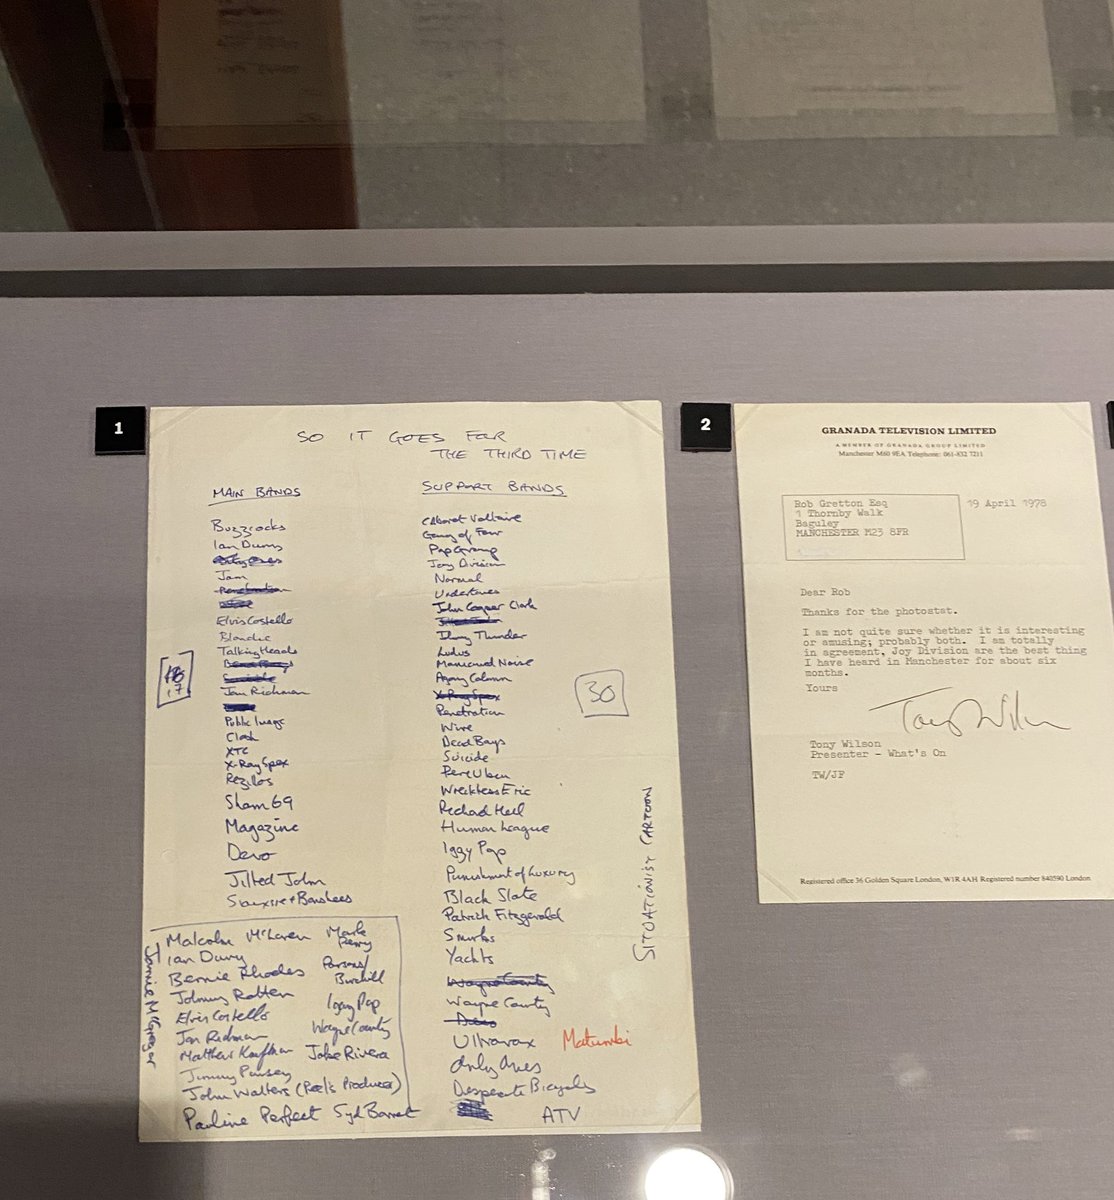 1
SO IT GOES FOR
THE THIRD TIME
MAIN BANDS
Buzzcocks
Ian Dury
Only Ones
Jam
Penetration
Elvis Costello
Blondie
Talking Heads
Dead Boys
Suicide
Jon Richman
Public Image
Clash
XTC
X-Ray Spex
Rezilos
Sham 69
Magazine
Devo
Jilted John
Siouxsie + Banshees
17
SUPPORT BANDS
Cabaret Voltaire
Gang of Four
Pop Group
Joy Division
Normal
Undertones
John Cooper Clark
Johnny Thunder
Ludus
Manicured Noise
Agony Column
X-Ray Spex
Penetration
Wire
Dead Boys
Suicide
Pere Ubu
Wreckless Eric
Richard Hell
Human League
Iggy Pop
Punishment of Luxury
Black Slate
Patrick Fitzgerald
Smirks
Yachts
Wayne County
Wayne County
Devo
Ultravox Matumbi
Only Ones
Desperate Bicycles
ATV
30
SITUATIONIST CARTOON
Malcolm McLaren Mark Perry
Ian Dury
Bernie Rhodes Parsons/ Burchill
Johnny Rotten
Elvis Costello Iggy Pop
Jon Richman Wayne County
Matthew Kaufman Jake Rivera
Jimmy Pursey
John Walters (Peel's Producer)
Pauline Perfect Syd Barret
Jamie McGregor
2
GRANADA TELEVISION LIMITED
A MEMBER OF GRANADA GROUP LIMITED
Manchester M60 9EA Telephone: 061-832 7211
Rob Gretton Esq
1 Thornby Walk
Baguley
MANCHESTER M23 8FR
19 April 1978
Dear Rob
Thanks for the photostst.
I am not quite sure whether it is interesting
or amusing; probably both. I am totally
in agreement, Joy Division are the best thing
I have heard in Manchester for about six
months.
Yours
Tony Wilson
Tony Wilson
Presenter - What's On
TW/JF
Registered office 36 Golden Square London, W1R 4AH Registered number 840590 London